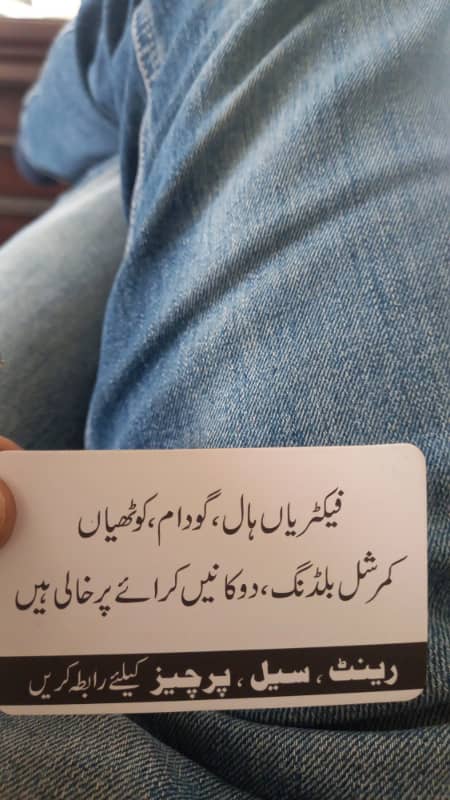 فیکٹریاں ہال، گودام، کوٹھیاں
کمرشل بلڈنگ، دوکانیں کرائے پر خالی ہیں
رینٹ، سیل، پرچیز کیلئے رابطہ کریں